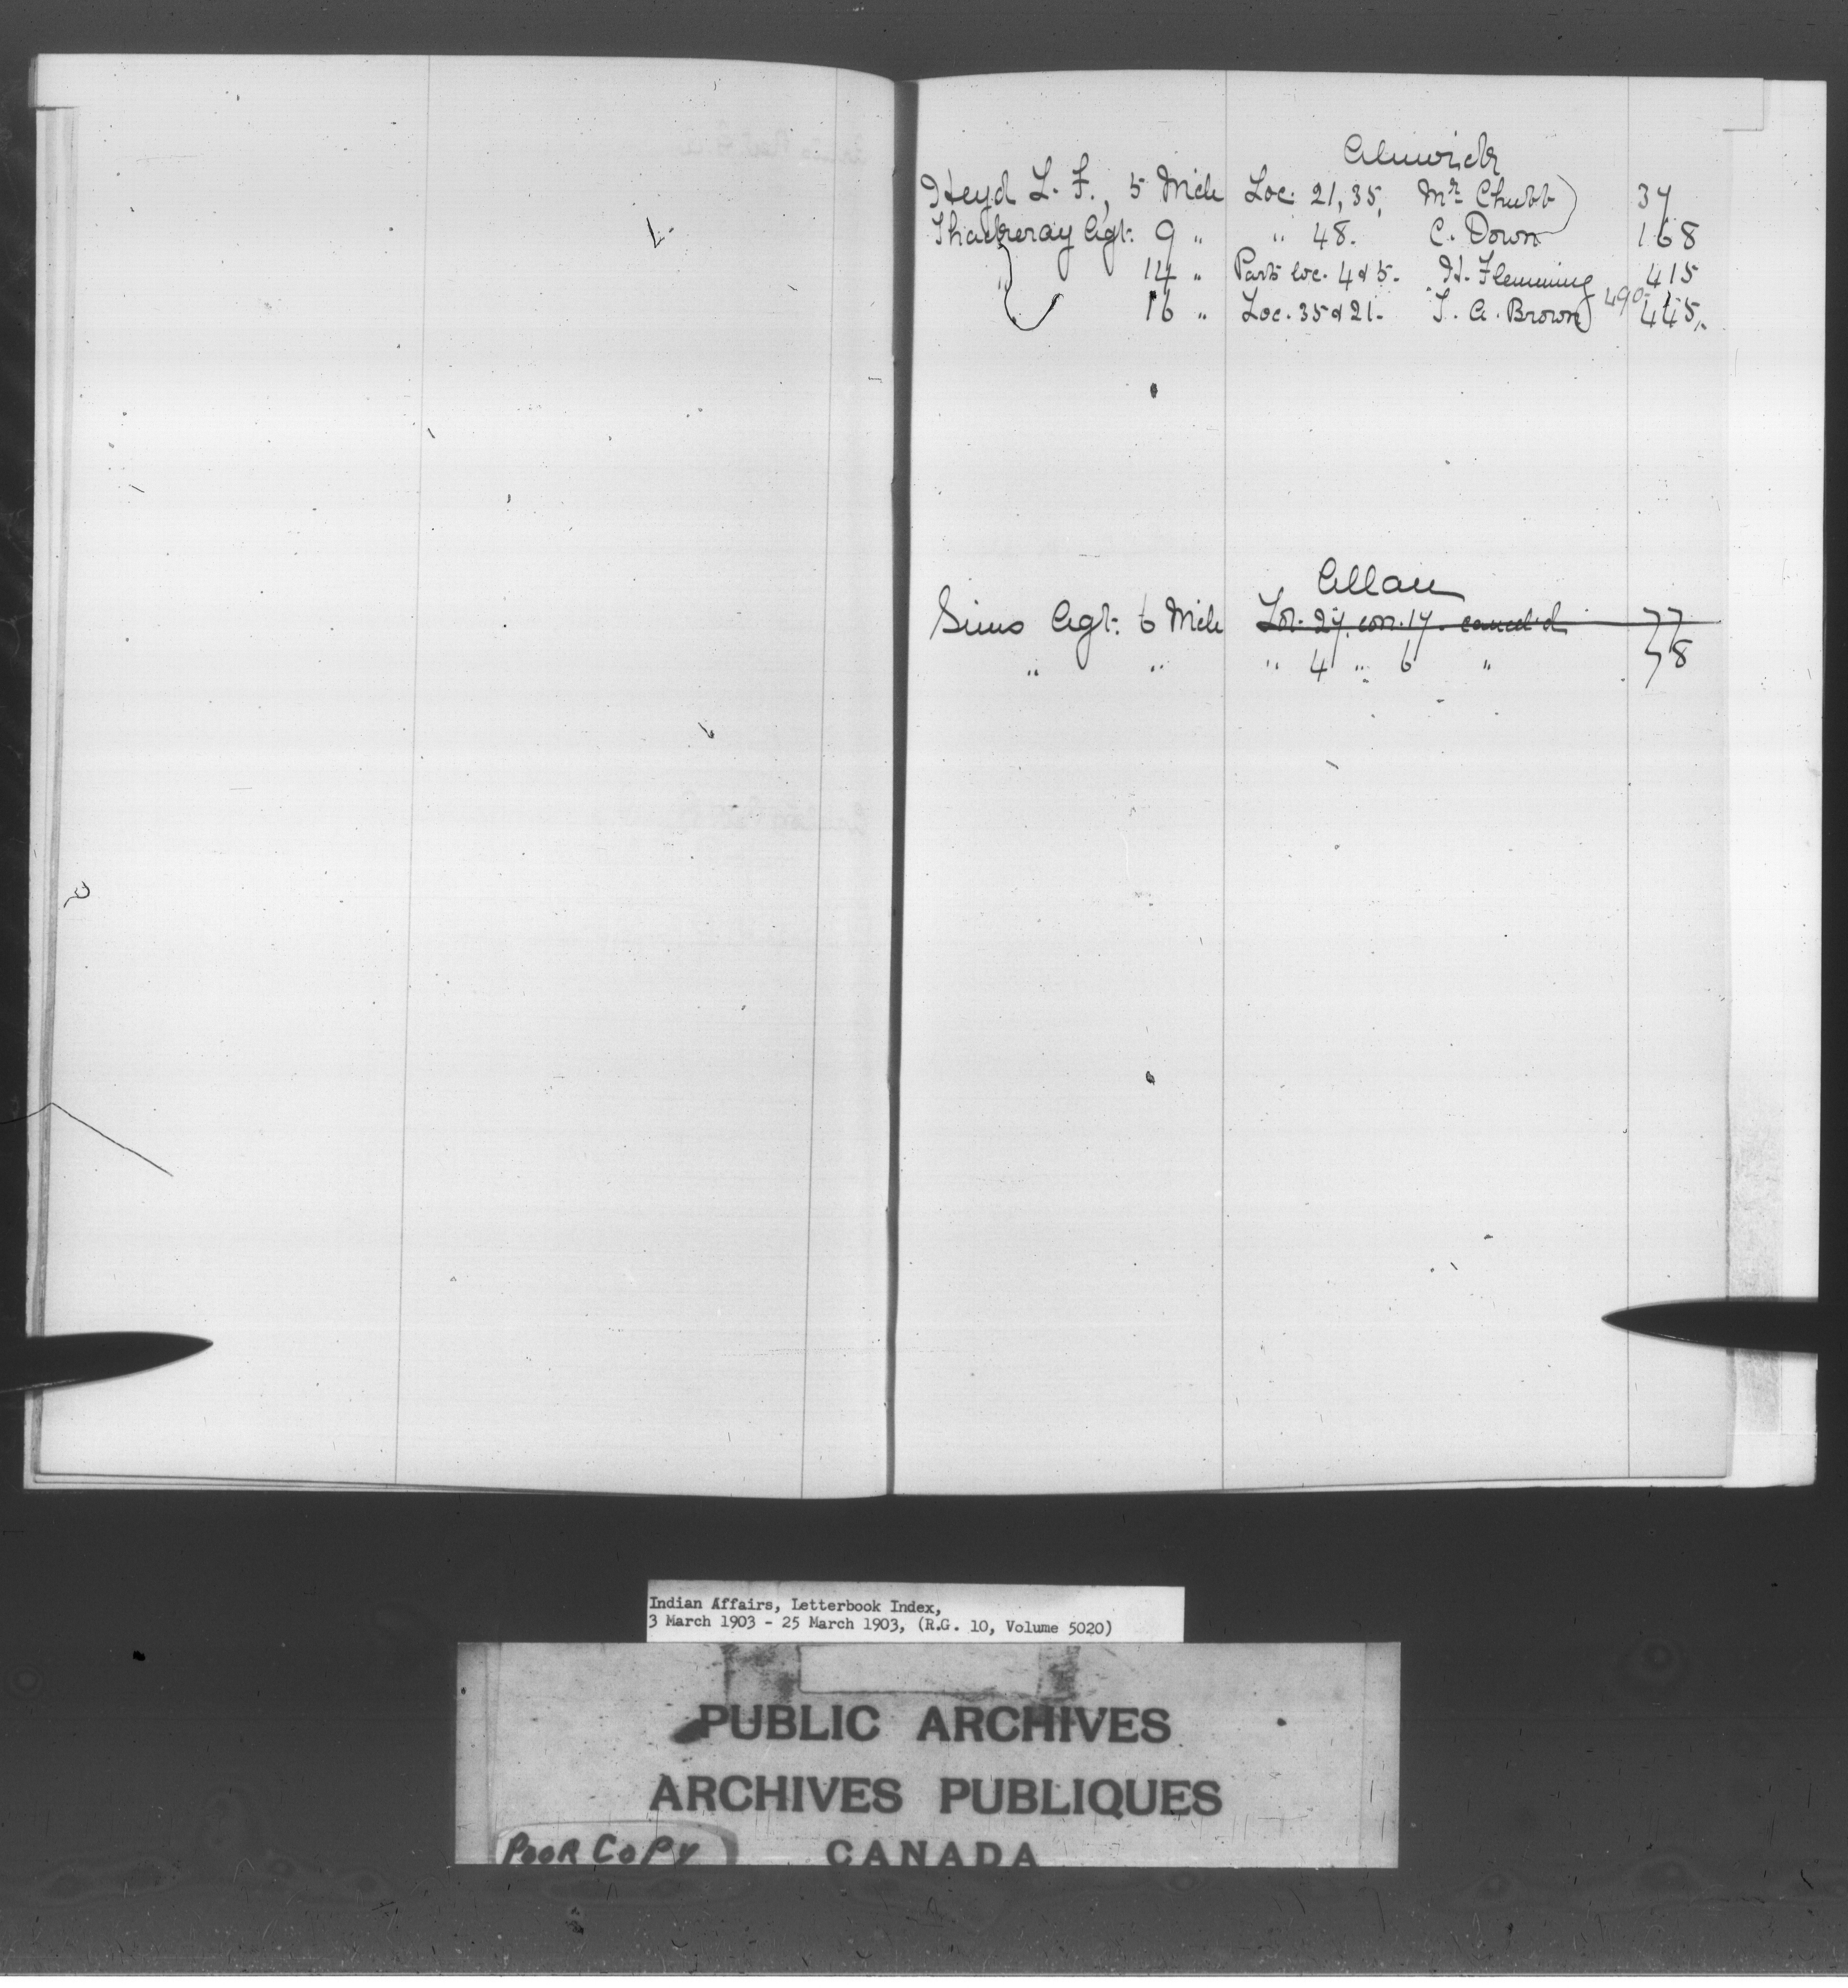 Alnwick
Heyd L. F., 5 Mch Loc. 21, 35, Mr Chubb 37
Thackeray Agt. 9 " " 48. C. Down 168
" 14 " Parts loc. 4 & 5. H. Flemming 415
16 " Loc. 35 & 21. T. A. Brown 490 445
Allan
Sims Agt. 6 Mch Lot. 27. con. 17. cancel'd 77
" " " 4 " 6 " 78
Indian Affairs, Letterbook Index,
3 March 1903 - 25 March 1903, (R.G. 10, Volume 5020)
PUBLIC ARCHIVES
ARCHIVES PUBLIQUES
POOR COPY CANADA